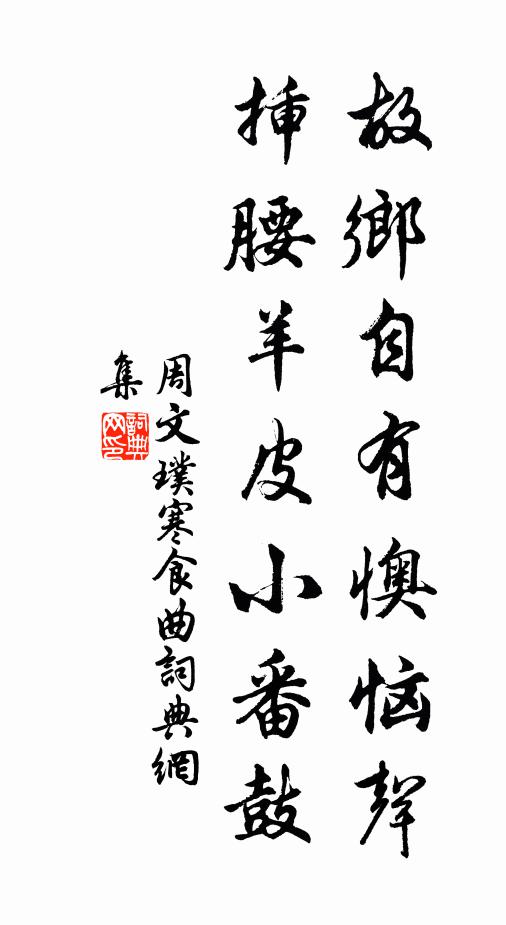 故鄉自有懊恼聲
挿腰羊皮小番鼓
周文璞寒食曲詞典網
集
詞典
网印